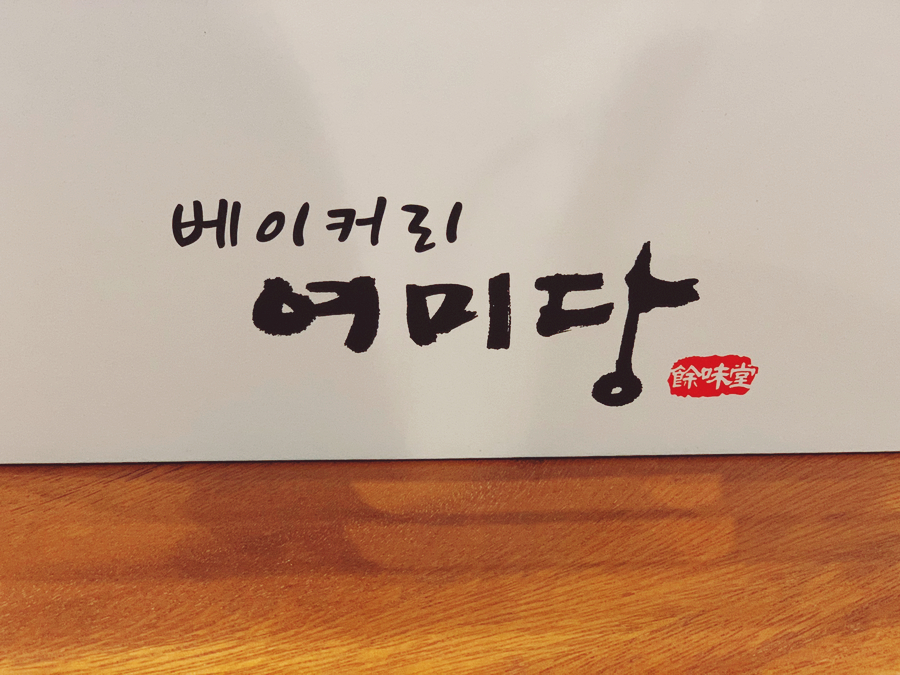 베이커리
여미당
餘味堂